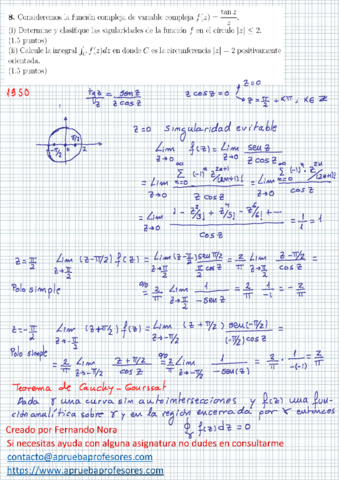 8. Consideremos la función compleja de variable compleja f(z) = tan z / z,
(i) Determine y clasifique las sigularidades de la función f en el círculo |z| ≤ 2.
(1.5 puntos)
(ii) Calcule la integral ∫_C f(z)dz en donde C es la circunferencia |z| = 2 positivamente
orientada.
(1.5 puntos)
1950
tg z / z = sen z / (z cos z)
z cos z = 0 { z = 0
z = π/2 + kπ, k ∈ Z
-π/2 π/2 2
z=0 singularidad evitable
Lim_{z→0} f(z) = Lim_{z→0} sen z / (z cos z) =
= Lim_{z→0} Σ_{n=0}^∞ (-1)^n z^{2n+1}/(2n+1)! / (z cos z) = Lim_{z→0} Σ_{n=0}^∞ (-1)^n z^{2n}/(2n+1)! / cos z
= Lim_{z→0} (1 - z²/3! + z⁴/5! - z⁶/6! + ...) / cos z = 1/1 = 1
z = π/2 Lim_{z→π/2} (z-π/2) f(z) = Lim_{z→π/2} (z-π/2) sen π/2 / (π/2 cos z) = 2/π Lim_{z→π/2} (z-π/2)/cos z =
Polo simple 0/0 = 2/π Lim_{z→π/2} 1/(-sen z) = 2/π · 1/-1 = -2/π
z = -π/2 Lim_{z→-π/2} (z+π/2) f(z) = Lim_{z→-π/2} (z+π/2) sen(-π/2) / ((-π/2) cos z) =
Polo simple = 2/π Lim_{z→-π/2} (z+π/2)/cos z 0/0 = 2/π Lim_{z→-π/2} 1/(-sen(z)) = 2/π · 1/-(-1) = 2/π
Teorema de Cauchy-Goursat
Dada γ una curva sin autointersecciones y f(z) una fun-
ción analítica sobre γ y en la región encerrada por γ entonces
∮_γ f(z) dz = 0
Creado por Fernando Nora
Si necesitas ayuda con alguna asignatura no dudes en consultarme
contacto@apruebaprofesores.com
https://www.apruebaprofesores.com